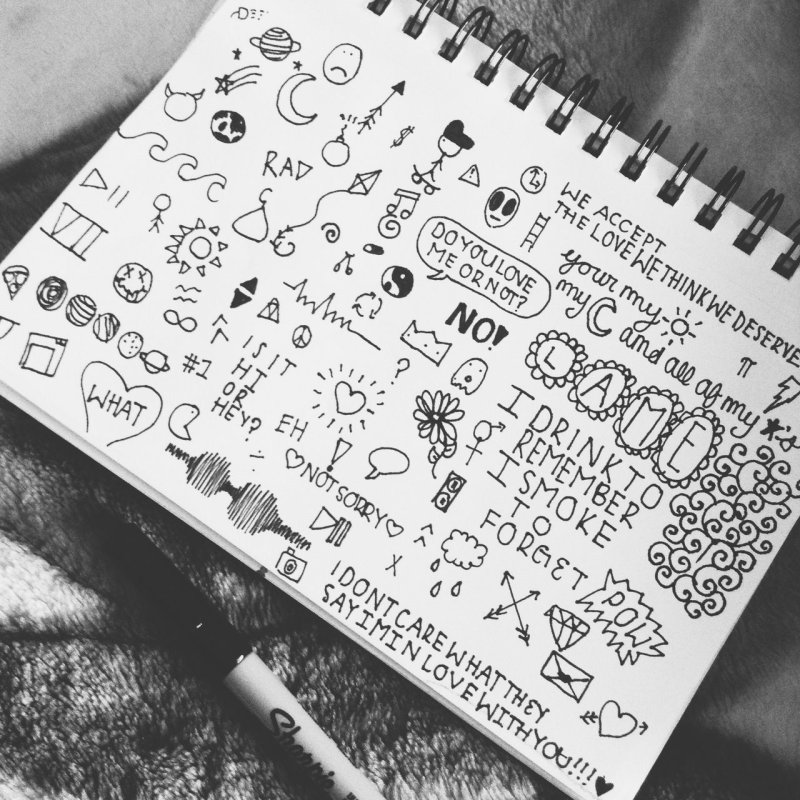 RAD
$
VII
WE ACCEPT
THE LOVE WE THINK WE DESERVE
DO YOU LOVE
ME OR NOT?
your my
my
and all of my *'s
π
NO!
LAME
?
#1
IS IT
HI
OR
HEY?
WHAT
EH
!
NOT SORRY
I DRINK TO
REMEMBER
I SMOKE
TO
FORGET
X
POW
I DONT CARE WHAT THEY
SAY IM IN LOVE WITH YOU!!!
Sharpie